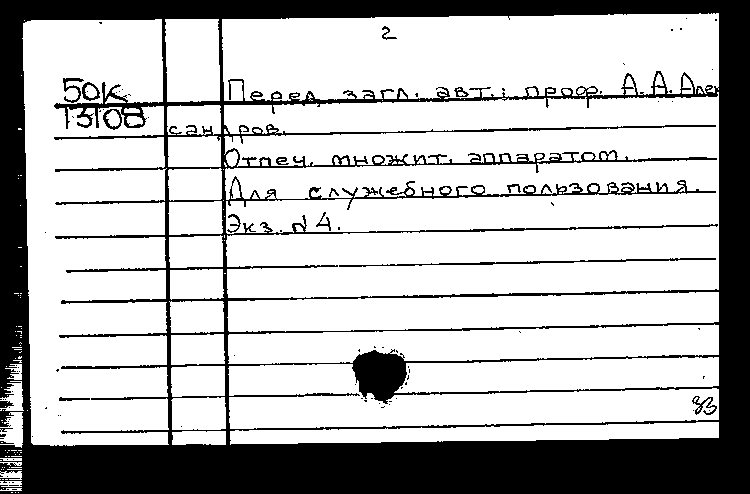 2
50К Перед загл. авт.: проф. А.А. Алек
13108 сандров.
Отпеч. множит. аппаратом.
Для служебного пользования.
Экз. N 4.